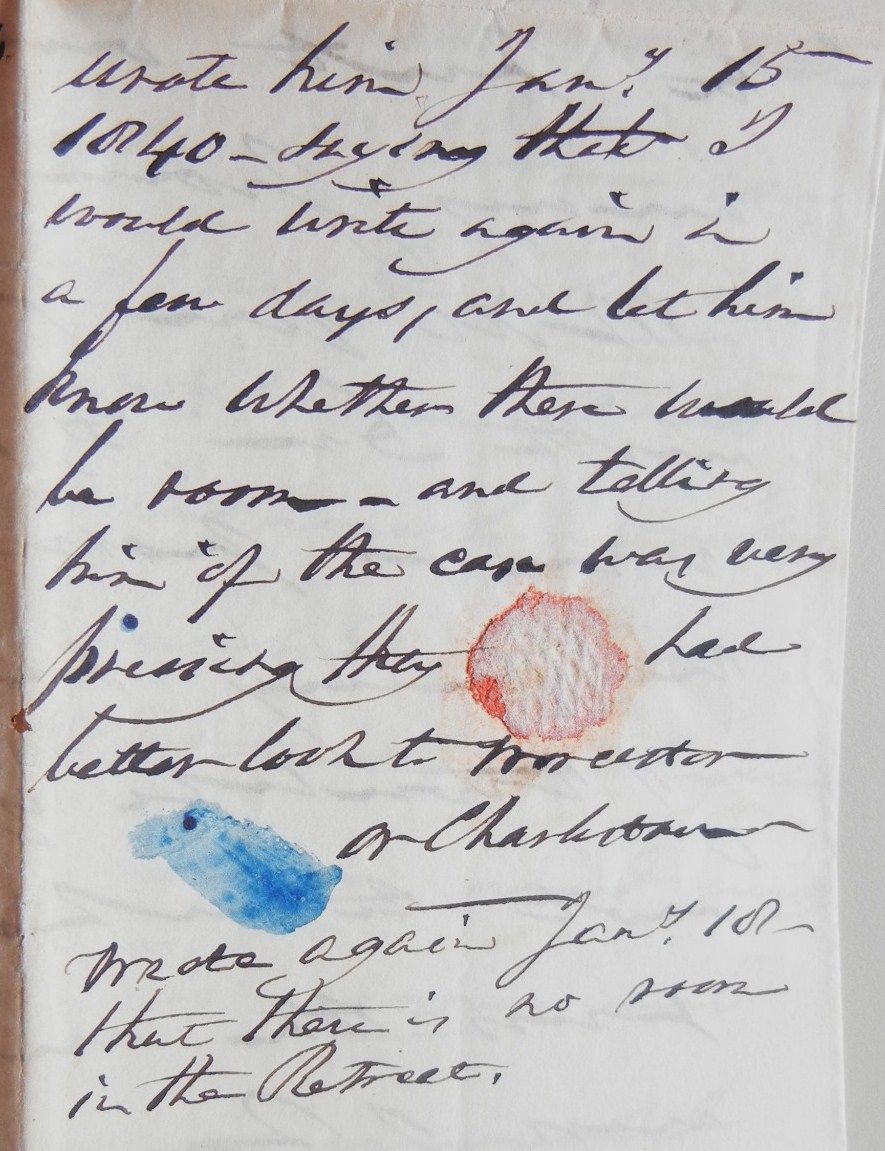 wrote him Jany. 15
1840 – saying that I
would write again in
a few days, and let him
know whether there would
be room – and telling
him if the case was very
pressing they had
better look to Worcester
or Charlestown –
Wrote again Jany. 18 –
that there is no room
in the Retreat.